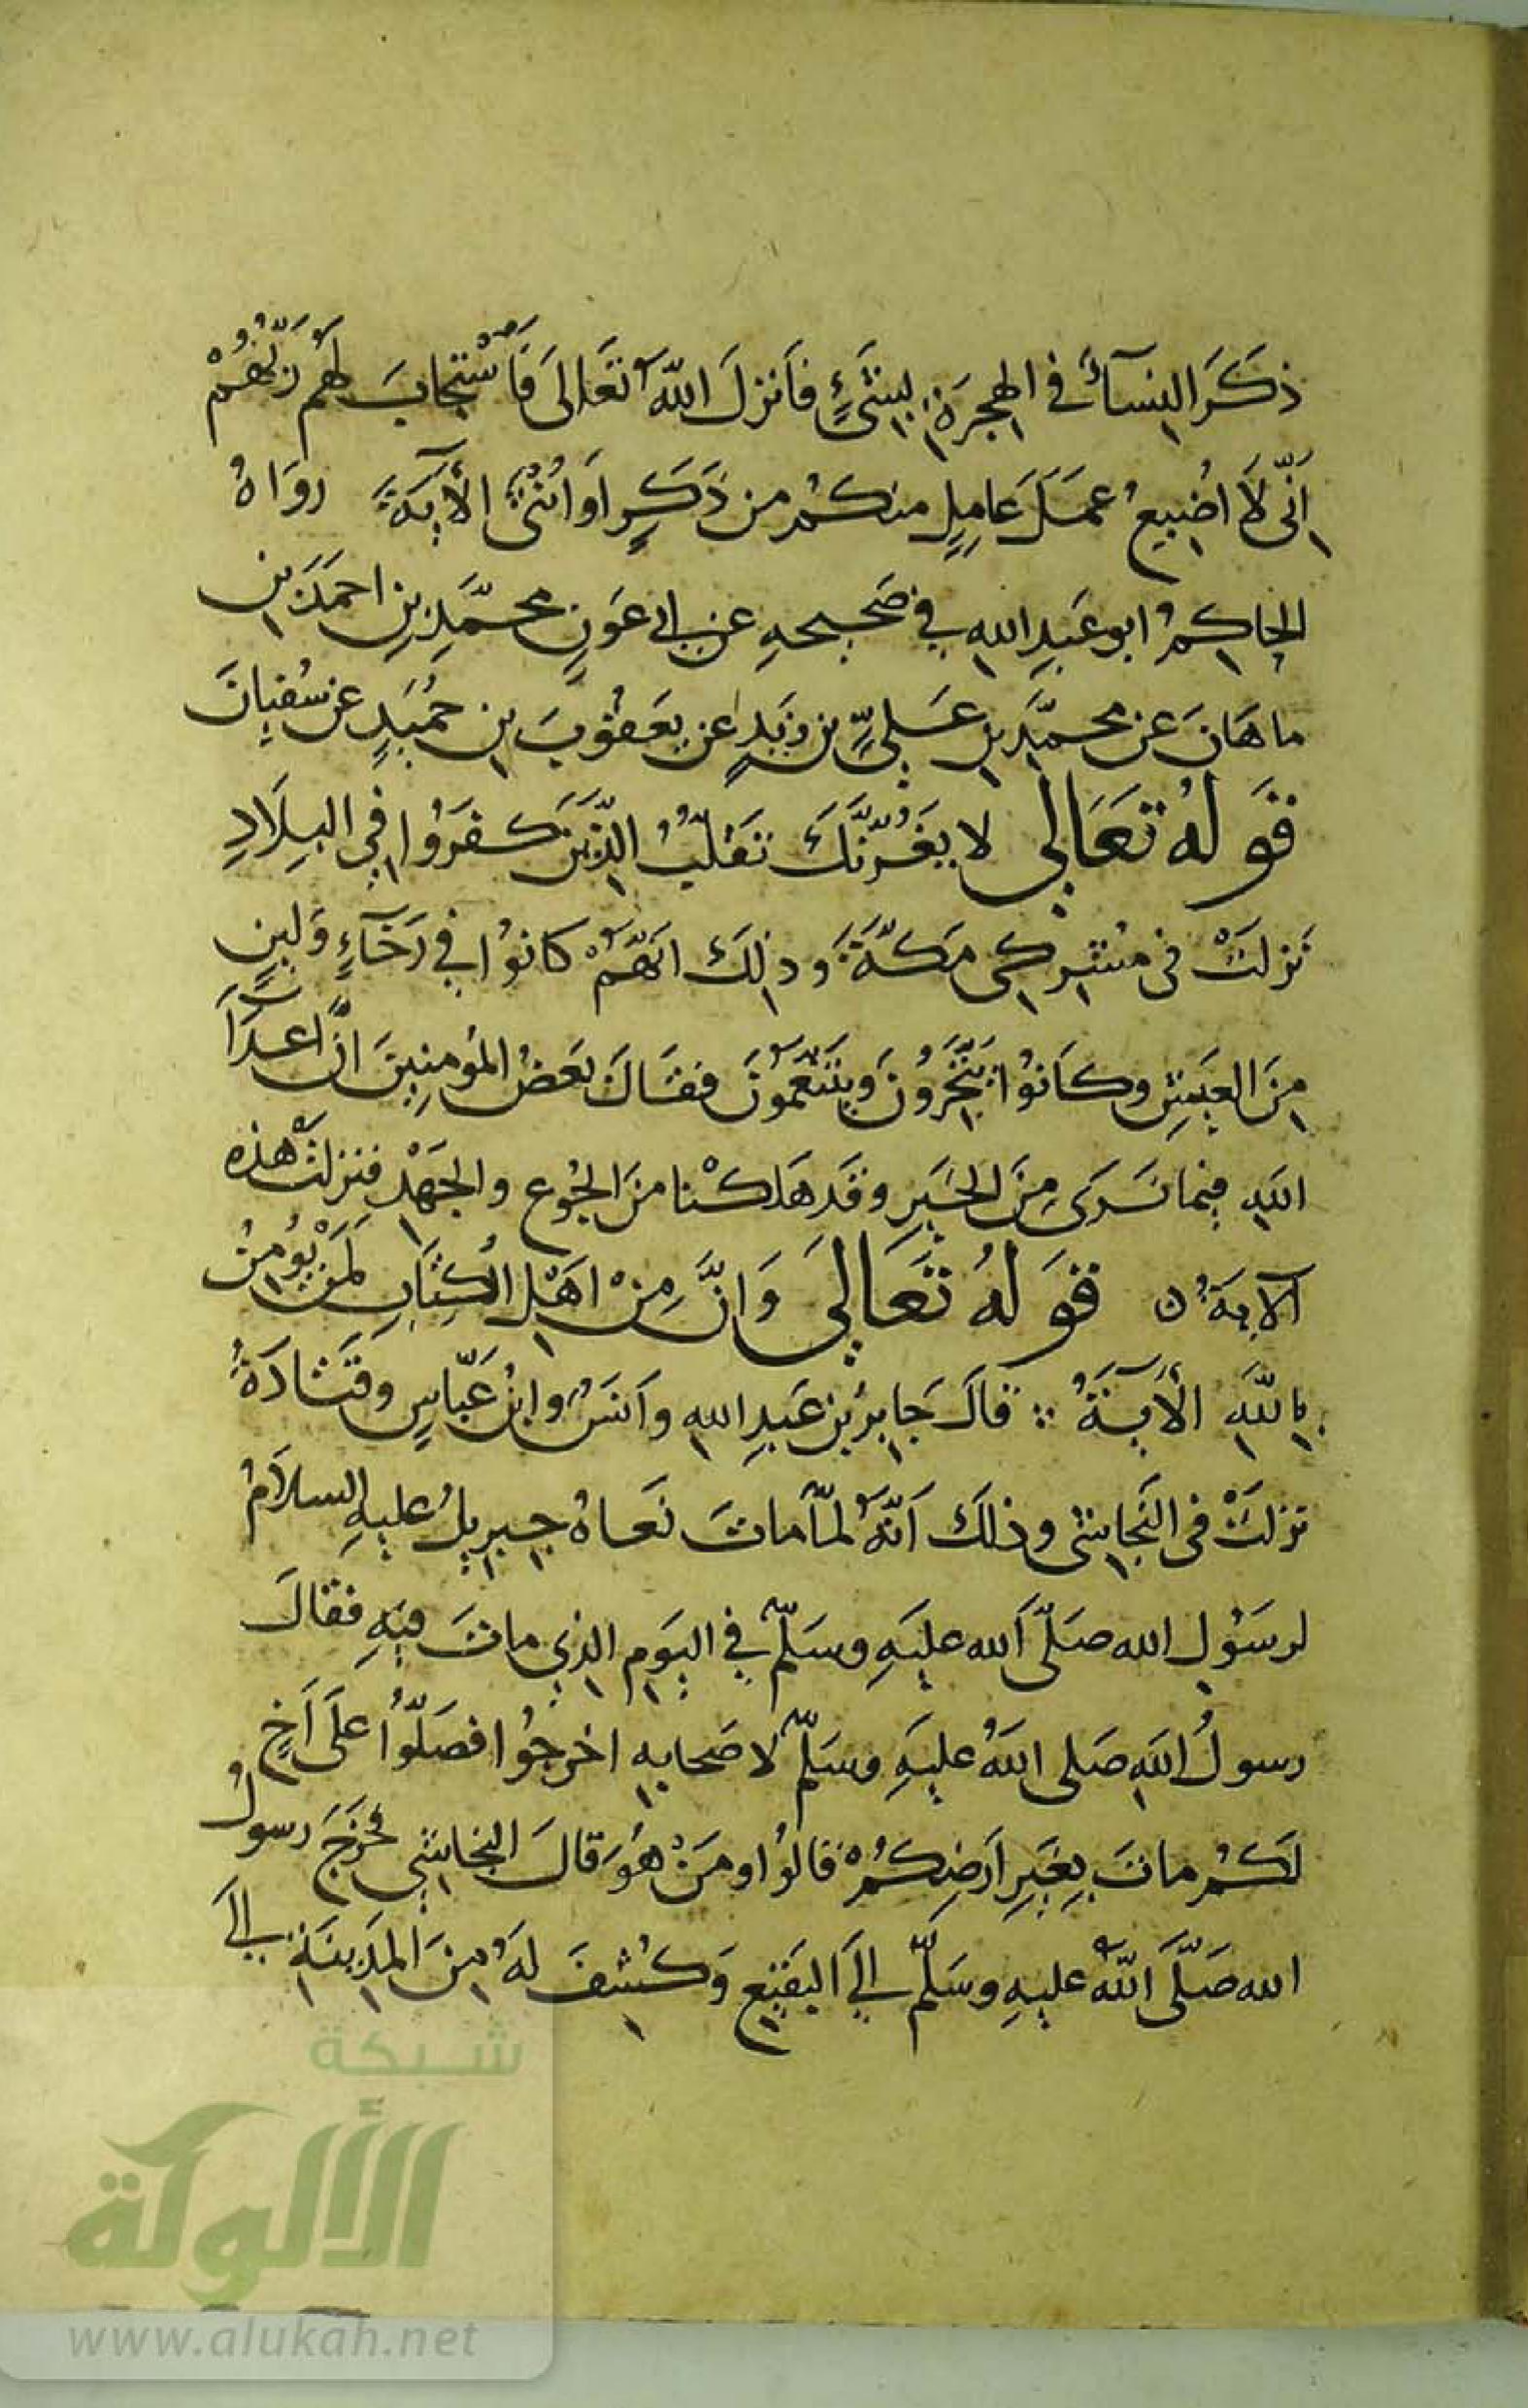 ذَكَرَ النِسَآءَ في الهِجرَةِ بِشَيْءٍ فأنزلَ اللهُ تَعَالى فَاسْتَجابَ لَهُم رَبُّهُمْ
اَنّى لَا اُضِيعُ عمَلَ عَامِلٍ منكُم من ذَكَرٍ اَو اُنْثَى الْأيَةَ رَوَاهُ
الحاكِمُ ابو عَبدِ الله في صَحيحهِ عن ابى عَونٍ محمَّدِ بنِ احمَدَ بنِ
ماهَانَ عن محمّدِ بنِ عَليِّ بن زَيدٍ عن يَعقُوبَ بن حُمَيدٍ عن سُفيانَ
قَولُهُ تَعَالى لا يَغُرَّنَّكَ تَقَلّبُ الّذِينَ كَفَرُوا في البِلَادِ
نَزلَتْ فى مُشْرِكى مَكَّةَ وذلِكَ انَّهُمْ كانوُا في رَخَآءٍ وَلينٍ
مِنَ العَيشِ وكَانوُا يَتَّجِرُونَ وَيَتَنَعَّمُونَ فقَالَ بَعضُ المُومِنِينَ انَّ اعدَآءَ
اللهِ فيما نَرَى مِنَ الخَيرِ وقَد هَلَكْنا منَ الجُوعِ والجَهْدِ فنزلتْ هَذه
الآيةُ ن قَولُهُ تَعَالى وَانَّ مِنْ اهْلِ الْكِتَابِ لَمَنْ يُومِنُ
بِاللهِ الْأَيَةَ قالَ جَابِرُ بنُ عَبدِ الله وأنَسٌ وابنُ عَبّاسٍ وقَتَادَةُ
نزلَتْ فى النَجاشى وذلكَ اَنَّهُ لمّا ماتَ نَعَاهُ جبريلُ عليهِ السلاَمُ
لرسَوُلِ الله صَلّى اَلله عليَهِ وسَلّمَ في اليَومِ الذي ماتَ فيهِ فقالَ
رسولُ اللهِ صَلى اللهُ عليهِ وسَلّم لاصَحابِهِ اخرجُوا فصَلّوُا عَلَى اَخٍ
لَكُم ماتَ بِغَيرِ اَرضِكُمْ قالوُا ومَنْ هُوَ قالَ النجاشي فخَرجَ رسولُ
الله صَلّى اللهُ عليهِ وسَلّمَ إلى البَقيعِ وَكُشِفَ لهُ مِنَ المَدينَةِ إلى
شبكة
الألوكة
www.alukah.net